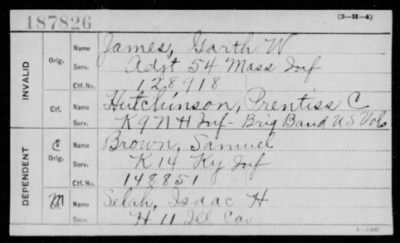 187826
(3-H-4)
INVALID
Orig.
Name James, Garth W
Serv. Adjt 54 Mass Inf
Ctf. No. 128918
Ctf.
Name Hutchinson, Prentiss C
Serv. K 9 N H Inf - Brig Band US Vols
DEPENDENT
C
Orig.
Name Brown, Samuel
Serv. K 14 Ky Inf
Ctf. No. 148851
M
Name Selah, Isaac H
Serv. H 11 Ill Cav